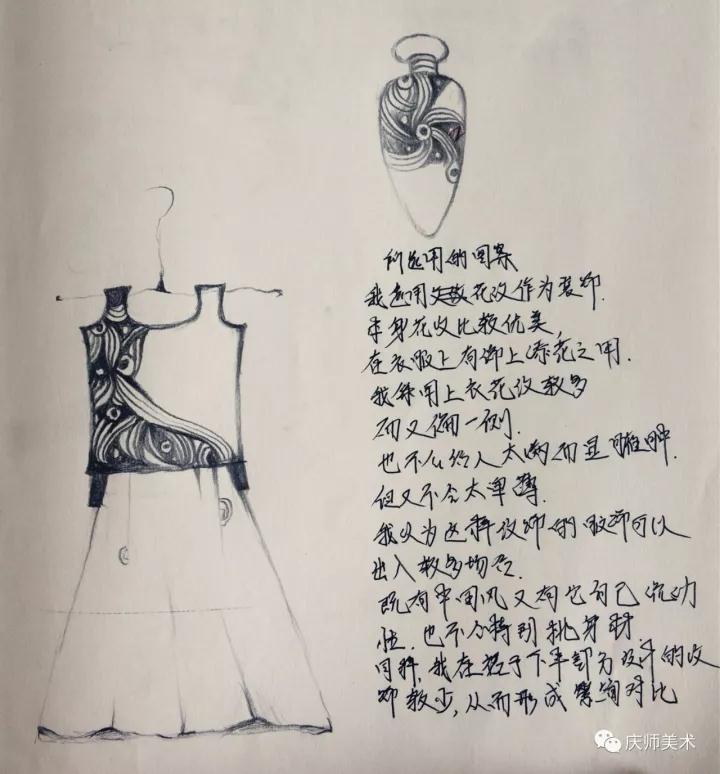 所选用的图案
我选用花纹作为装饰.
本身花纹比较优美,
在衣服上有锦上添花之用.
我采用上衣花纹较多
而又偏一侧.
也不会给人太满而显臃肿.
但又不会太单薄.
我认为这种纹饰的服饰可以
出入较多场合.
既有中国风又有它自己流动
性. 也不会特别挑身材.
同样,我在裙子下半部分设计的纹
饰较少,从而形成繁简对比
庆师美术